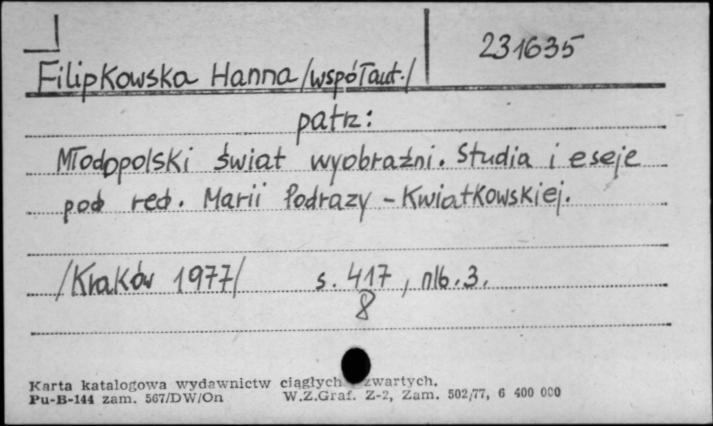 231635
Filipkowska Hanna /współaut./
patrz:
Młodopolski świat wyobraźni. Studia i eseje
pod red. Marii Podrazy - Kwiatkowskiej.
/Kraków 1977/ s. 417, nlb. 3.
8
Karta katalogowa wydawnictw ciągłych zwartych.
Pu-B-144 zam. 567/DW/On W.Z.Graf. Z-2, Zam. 502/77, 6 400 000